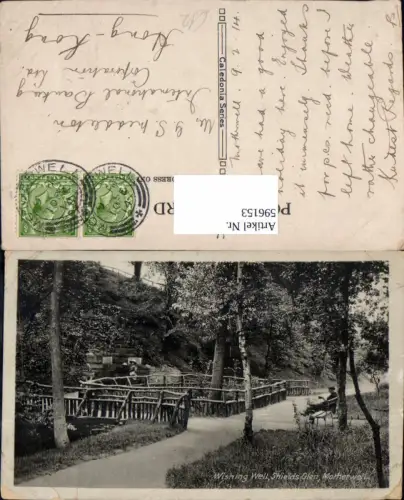 Mr. G. S. Middleton
International Banking
Corporation Ltd.
Hong-Kong
Caledonia Series
Motherwell. 9.2.14.
have had a good
holiday here. Enjoyed
it immensely. Thanks
for p.cs. recd. before I
left home. Weather
rather changeable.
Kindest Regards.
ADDRESS ONLY
Artikel Nr.
596153
Wishing Well, Shields Glen, Motherwell.